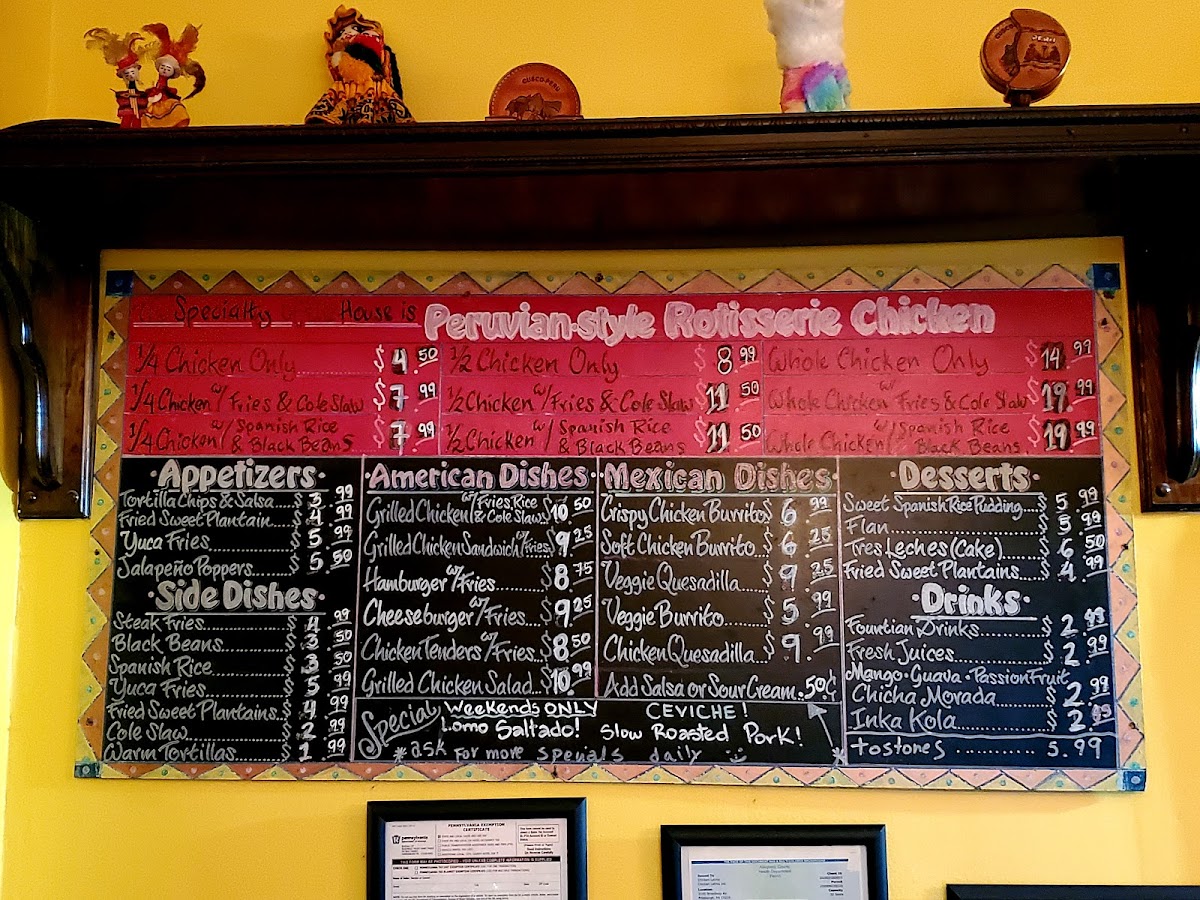 CUSCO-PERU
CUSCO
PERU
Specialty House is Peruvian-style Rotisserie Chicken
1/4 Chicken Only........ $4.50
1/4 Chicken w/ Fries & Cole Slaw $7.99
1/4 Chicken w/ Spanish Rice & Black Beans $7.99
1/2 Chicken Only $8.99
1/2 Chicken w/ Fries & Cole Slaw $11.50
1/2 Chicken w/ Spanish Rice & Black Beans $11.50
Whole Chicken Only $14.99
Whole Chicken w/ Fries & Cole Slaw $19.99
Whole Chicken w/ Spanish Rice Black Beans $19.99
·Appetizers·
Tortilla Chips & Salsa....$3.99
Fried Sweet Plantain....$4.99
Yuca Fries........$5.99
Jalapeño Poppers........$5.50
·Side Dishes·
Steak Fries..........$4.99
Black Beans........$3.50
Spanish Rice........$3.50
Yuca Fries..........$5.99
Fried Sweet Plantains...$4.99
Cole Slaw..........$2.99
Warm Tortillas........$1.99
·American Dishes·
Grilled Chicken w/ Fries, Rice & Cole Slaw $10.50
Grilled Chicken Sandwich w/ Fries $9.25
Hamburger w/ Fries......$8.75
Cheeseburger w/ Fries...$9.25
Chicken Tenders w/ Fries...$8.50
Grilled Chicken Salad...$10.99
·Mexican Dishes·
Crispy Chicken Burrito $6.99
Soft Chicken Burrito...$6.25
Veggie Quesadilla.....$9.25
Veggie Burrito.......$5.99
Chicken Quesadilla...$9.99
Add Salsa or Sour Cream..50¢
Special
Weekends ONLY
Lomo Saltado!
CEVICHE!
Slow Roasted Pork!
*ask for more specials daily
*
·Desserts·
Sweet Spanish Rice Pudding....$5.99
Flan..............$5.99
Tres Leches (Cake)......$6.50
Fried Sweet Plantains....$4.99
·Drinks·
Fountian Drinks........$2.
Fresh Juices..........$2.99
Mango·Guava·Passion Fruit
Chicha Morada........$2.99
Inka Kola..........$2.
tostones .......... 5.99
pennsylvania
PENNSYLVANIA EXEMPTION
CERTIFICATE